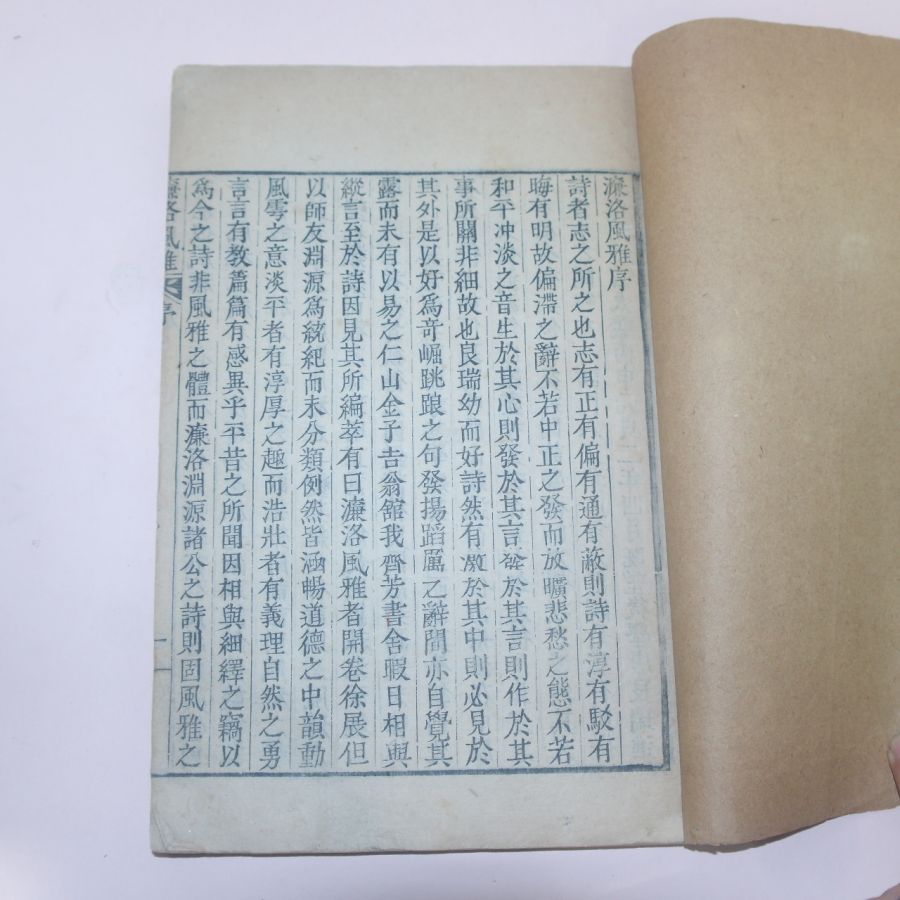 濂洛風雅序
詩者志之所之也志有正有偏有通有蔽則詩有淳有駁有
晦有明故偏滯之辭不若中正之發而放曠悲愁之態不若
和平冲淡之音生於其心則發於其言發於其言則作於其
事所關非細故也良瑞幼而好詩然有激於其中則必見於
其外是以好為竒崛跳踉之句發揚蹈厲之辭間亦自覺其
露而未有以易之仁山金子吉翁舘我齊芳書舍暇日相與
縱言至於詩因見其所編萃有曰濂洛風雅者開卷徐展但
以師友淵源為統紀而未分類例然皆涵暢道德之中韻動
風雩之意淡平者有淳厚之趣而浩壯者有義理自然之勇
言言有教篇篇有感異乎平昔之所聞因相與細繹之竊以
為今之詩非風雅之體而濂洛淵源諸公之詩則固風雅之
濂洛風雅 序 一